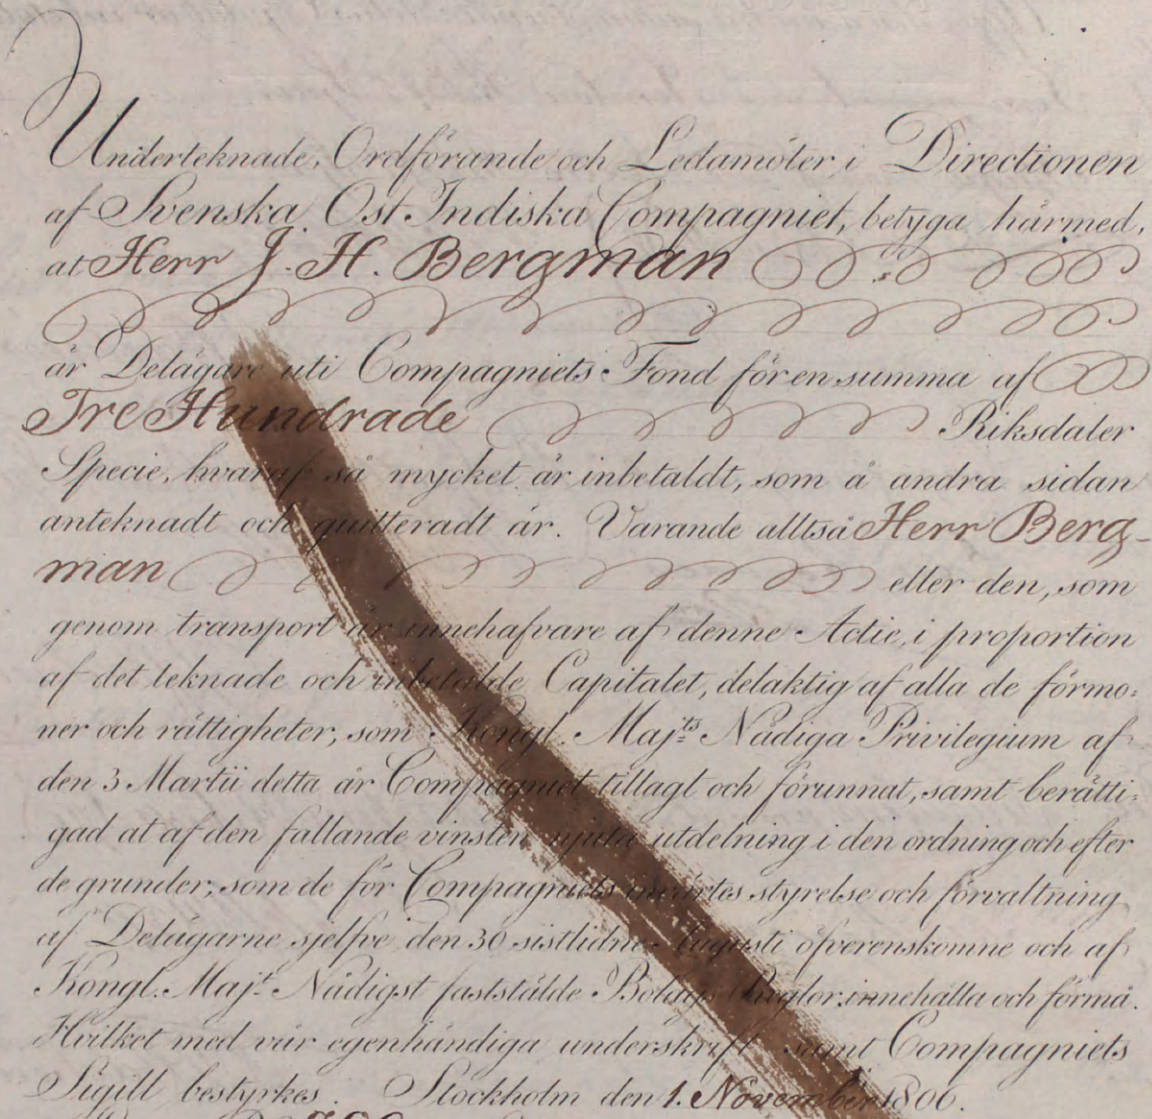 Underteknade, Ordförande och Ledamöter, i Directionen
af Svenska Ost Indiska Compagniet, betyga härmed,
at Herr J. H. Bergman
är Delägare uti Compagniets Fond för en summa af
Tre Hundrade Riksdaler
Specie, hvaraf så mycket är inbetaldt, som å andra sidan
anteknadt och quitteradt är. Varande alltså Herr Berg-
man eller den, som
genom transport är innehafvare af denne Actie, i proportion
af det teknade och inbetalde Capitalet, delaktig af alla de förmo-
ner och rättigheter, som Kongl. Maj:ts Nådiga Privilegium af
den 3 Martii detta år Compagniet tillagt och förunnat, samt berätti-
gad at af den fallande vinsten njuta utdelning i den ordning och efter
de grunder, som de för Compagniets invärtes styrelse och förvaltning
af Delägarne sjelfve den 30 sistlidne Augusti öfverenskomne och af
Kongl. Maj:t Nådigst faststälde Bolags Reglor innehålla och förmå.
Hvilket med vår egenhändiga underskrift samt Compagniets
Sigill bestyrkes. Stockholm den 1. November 1806.